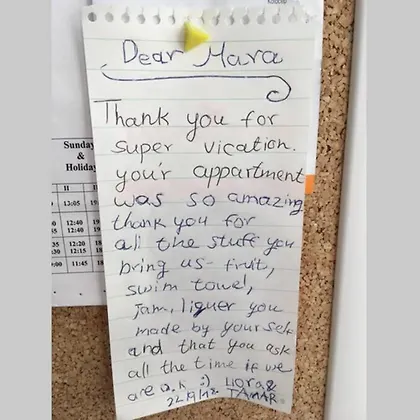 Dear Mara
Thank you for
super vication.
you'r appartment
was so amazing
thank you for
all the stuff you
bring us- fruit,
swim towel,
Jam, liquer you
made by your self
and that you ask
all the time if we
are o.k :)
TAMAR
Sunday
&
Holiday
II
II
13:05
12:40
12:40
12:20
12:15
11:45